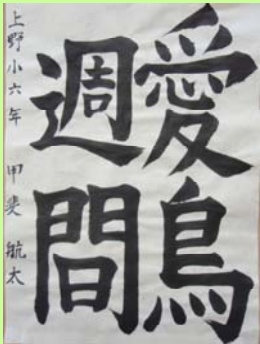 愛鳥
週間
上野小六年 甲斐航太